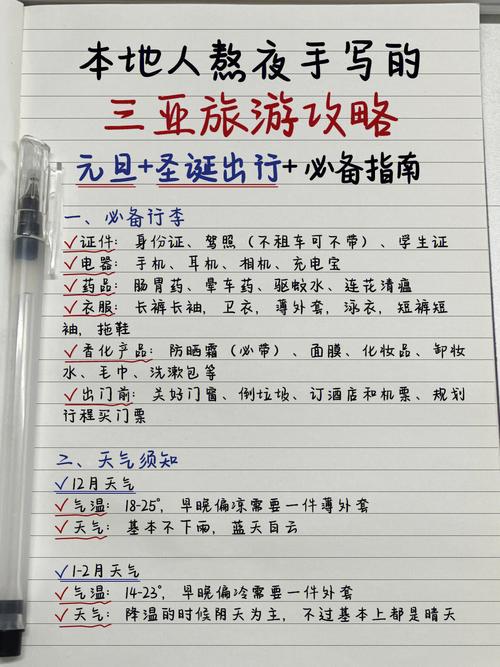 本地人熬夜手写的
三亚旅游攻略
元旦+圣诞出行+必备指南
一、必备行李
✓证件：身份证、驾照（不租车可不带）、学生证
✓电器：手机、耳机、相机、充电宝
✓药品：肠胃药、晕车药、驱蚊水、连花清瘟
✓衣服：长裤长袖，卫衣，薄外套，泳衣，短裤短
袖，拖鞋
✓香化产品：防晒霜（必带）、面膜、化妆品、卸妆
水、毛巾、洗漱包等
✓出门前：关好门窗、倒垃圾、订酒店和机票、规划
行程买门票
二、天气须知
✓12月天气
✓气温：18-25°，早晚偏凉需要一件薄外套
✓天气：基本不下雨，蓝天白云
✓1-2月天气
✓气温：14-23°，早晚偏冷需要一件外套
✓天气：降温的时候阴天为主，不过基本上都是晴天